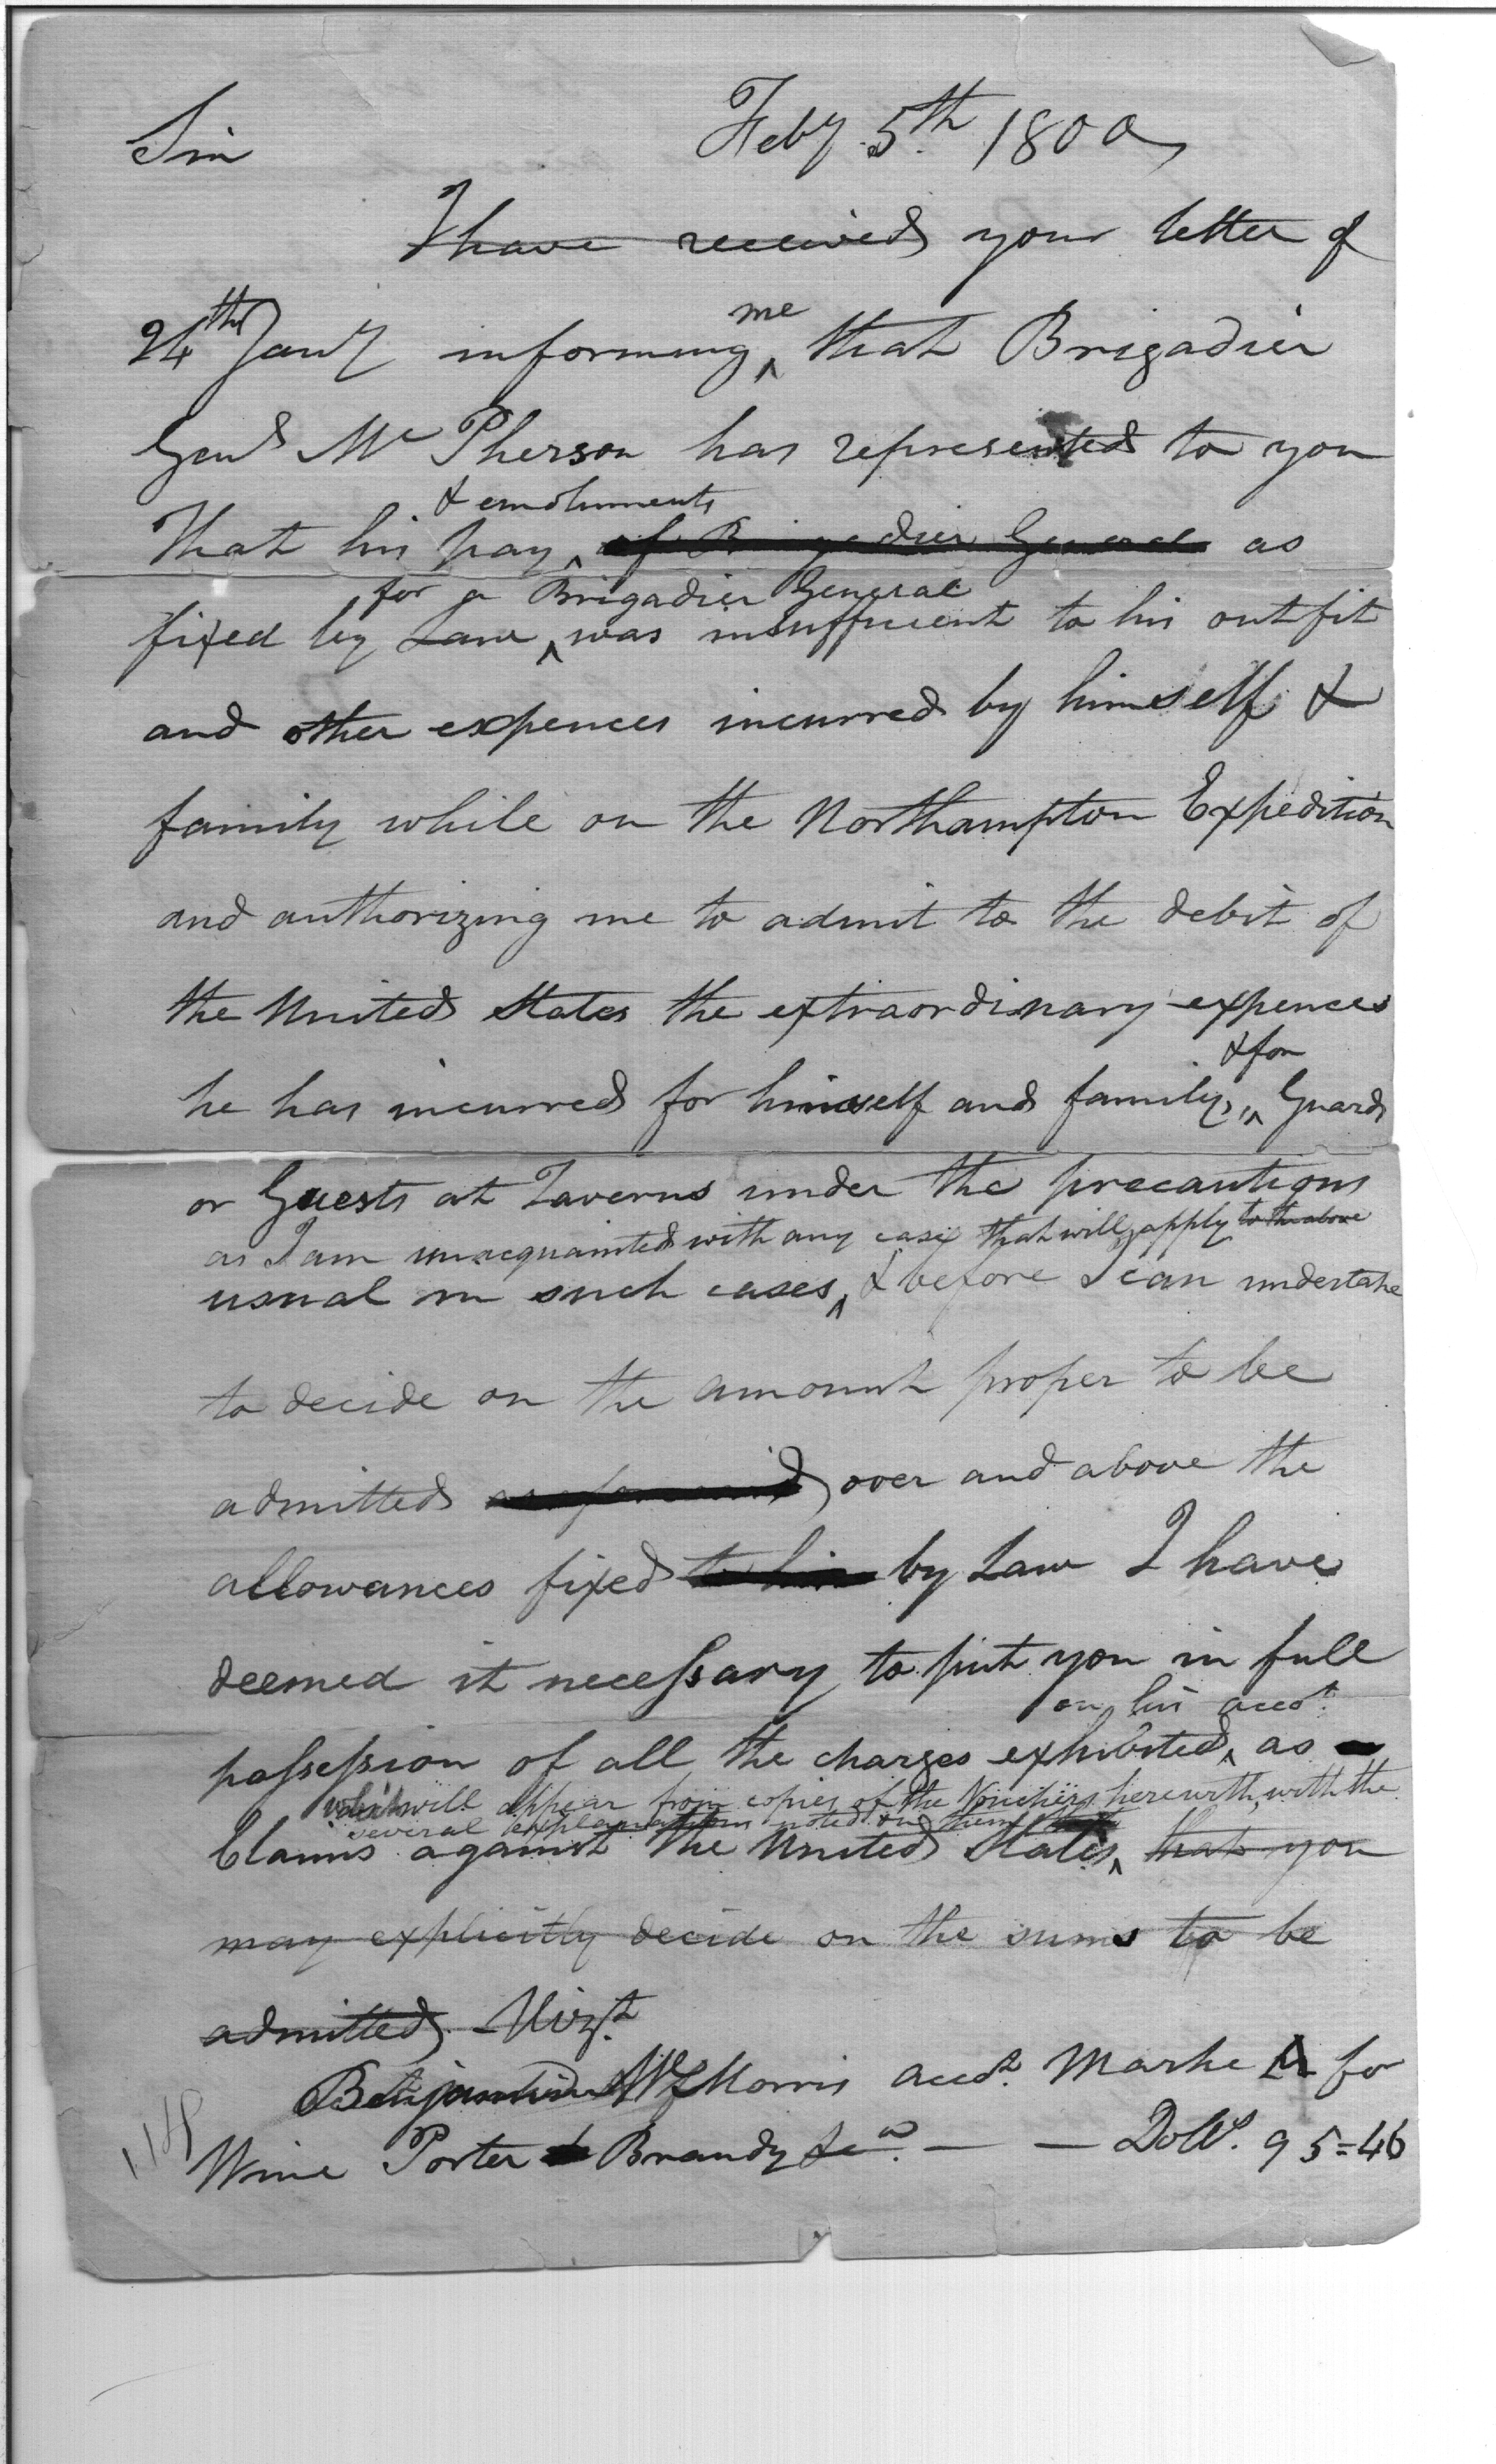 Feby 5th 1800
Sir
I have received your letter of
24th Jany informing me that Brigadier
Genl Mc Pherson has represented to you
& emoluments
That his pay of Brigadier General as
for a Brigadier General
fixed by Law was insufficient to his outfit
and other expences incurred by himself &
family while on the Northampton Expedition
and authorizing me to admit to the debit of
the United States the extraordinary expences
& for
he has incurred for himself and family, Guards
or Guests at Taverns under the precautions
as I am unacquainted with any case that will apply to the above
usual in such cases, & before I can undertake
to decide on the amount proper to be
admitted over and above the
allowances fixed to him by Law I have
deemed it necessary to put you in full
on his accot.
possession of all the charges exhibited as
which will appear from copies of the Vouchers herewith, with the
several explanations noted on them
Claims against the United States, that you
may explicitly decide on the sums to be
admitted. Vizt.
Benjamin W Morris accot. Marke A for
Wine Porter Brandy &ca. — — Dolls. 95=46
118